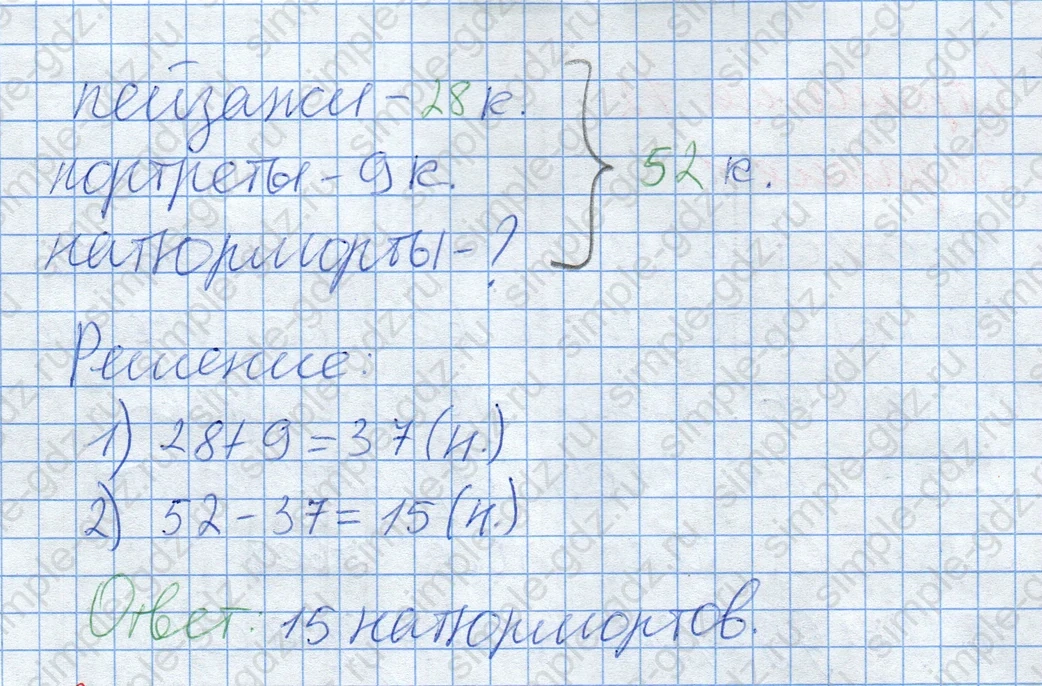 пейзажи - 28 к.
портреты - 9 к.
натюрморты - ?
52 к.
Решение:
1) 28+9=37(н.)
2) 52-37=15(н.)
Ответ: 15 натюрмортов.
simple-gdz.ru